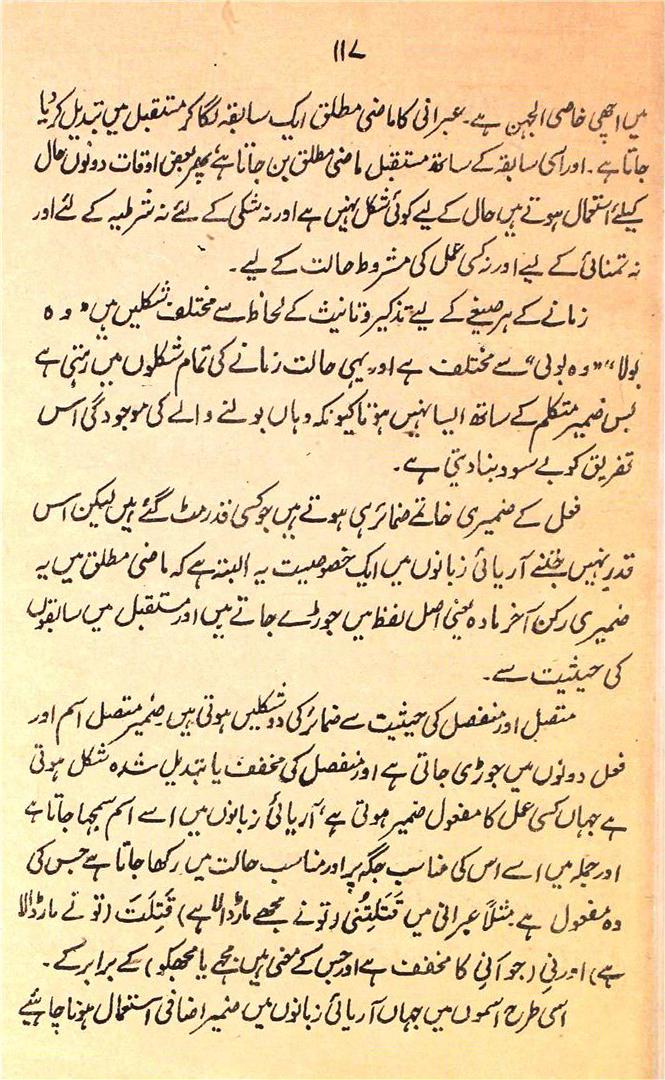 ۱۱۷
میں اچھی خاصی الجھن ہے۔ عبرانی کا ماضی مطلق ایک سابقہ لگا کر مستقبل میں تبدیل کر دیا
جاتا ہے۔ اور اسی سابقہ کے ساتھ مستقبل ماضی مطلق بن جاتا ہے، پھر بعض اوقات دونوں حال
کیلئے استعمال ہوتے ہیں حال کے لیے کوئی شکل نہیں ہے اور نہ شکی کے لئے نہ شرطیہ کے لئے اور
نہ تمنائی کے لیے اور نہ کسی عمل کی مشروط حالت کے لیے۔
زمانے کے ہر صیغے کے لیے تذکیر و تانیث کے لحاظ سے مختلف شکلیں ہیں "وہ
بولا" "وہ بولی" سے مختلف ہے اور یہی حالت زمانے کی تمام شکلوں میں رہتی ہے
بس ضمیر متکلم کے ساتھ ایسا نہیں ہوتا کیونکہ وہاں بولنے والے کی موجودگی اس
تفریق کو بے سود بنا دیتی ہے۔
فعل کے ضمیری خاتمے ضمائر ہی ہوتے ہیں جو کسی قدر مٹ گئے ہیں لیکن اس
قدر نہیں جتنے آریائی زبانوں میں ایک خصوصیت یہ البتہ ہے کہ ماضی مطلق میں یہ
ضمیری رکن آخر مادہ یعنی اصل لفظ میں جوڑے جاتے ہیں اور مستقبل میں سابقوں
کی حیثیت سے۔
متصل اور منفصل کی حیثیت سے ضمائر کی دو شکلیں ہوتی ہیں۔ ضمیر متصل اسم اور
فعل دونوں میں جوڑی جاتی ہے اور منفصل کی مخفف یا تبدیل شدہ شکل ہوتی
ہے جہاں کسی عمل کا مفعول ضمیر ہوتی ہے، آریائی زبانوں میں اسے اسم سمجھا جاتا ہے
اور جملہ میں اسے اس کی مناسب جگہ پر اور مناسب حالت میں رکھا جاتا ہے جس کی
وہ مفعول ہے مثلاً عبرانی میں قَتَلِتُنی (تو نے مجھے مار ڈالا ہے) قَتِلَتَ (تو نے مار ڈالا
ہے) اور نِی (جو آنی کا مخفف ہے اور جس کے معنی ہیں: مجھے یا مجھکو) کے برابر کے۔
اسی طرح اسموں میں جہاں آریائی زبانوں میں ضمیر اضافی استعمال ہونا چاہئیے